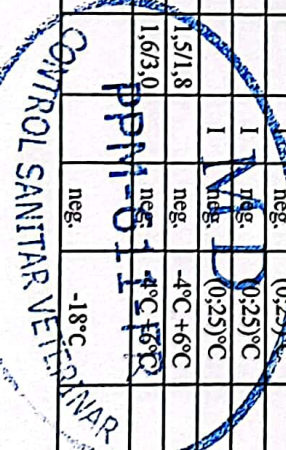 neg.
I neg. 0;25)°C
I neg. (0;25)°C
1,5/1,8 neg. -4°C +6°C
1,6/3,0 neg. -4°C +6°C
neg. -18°C
MD
CONTROL SANITAR VETERINAR